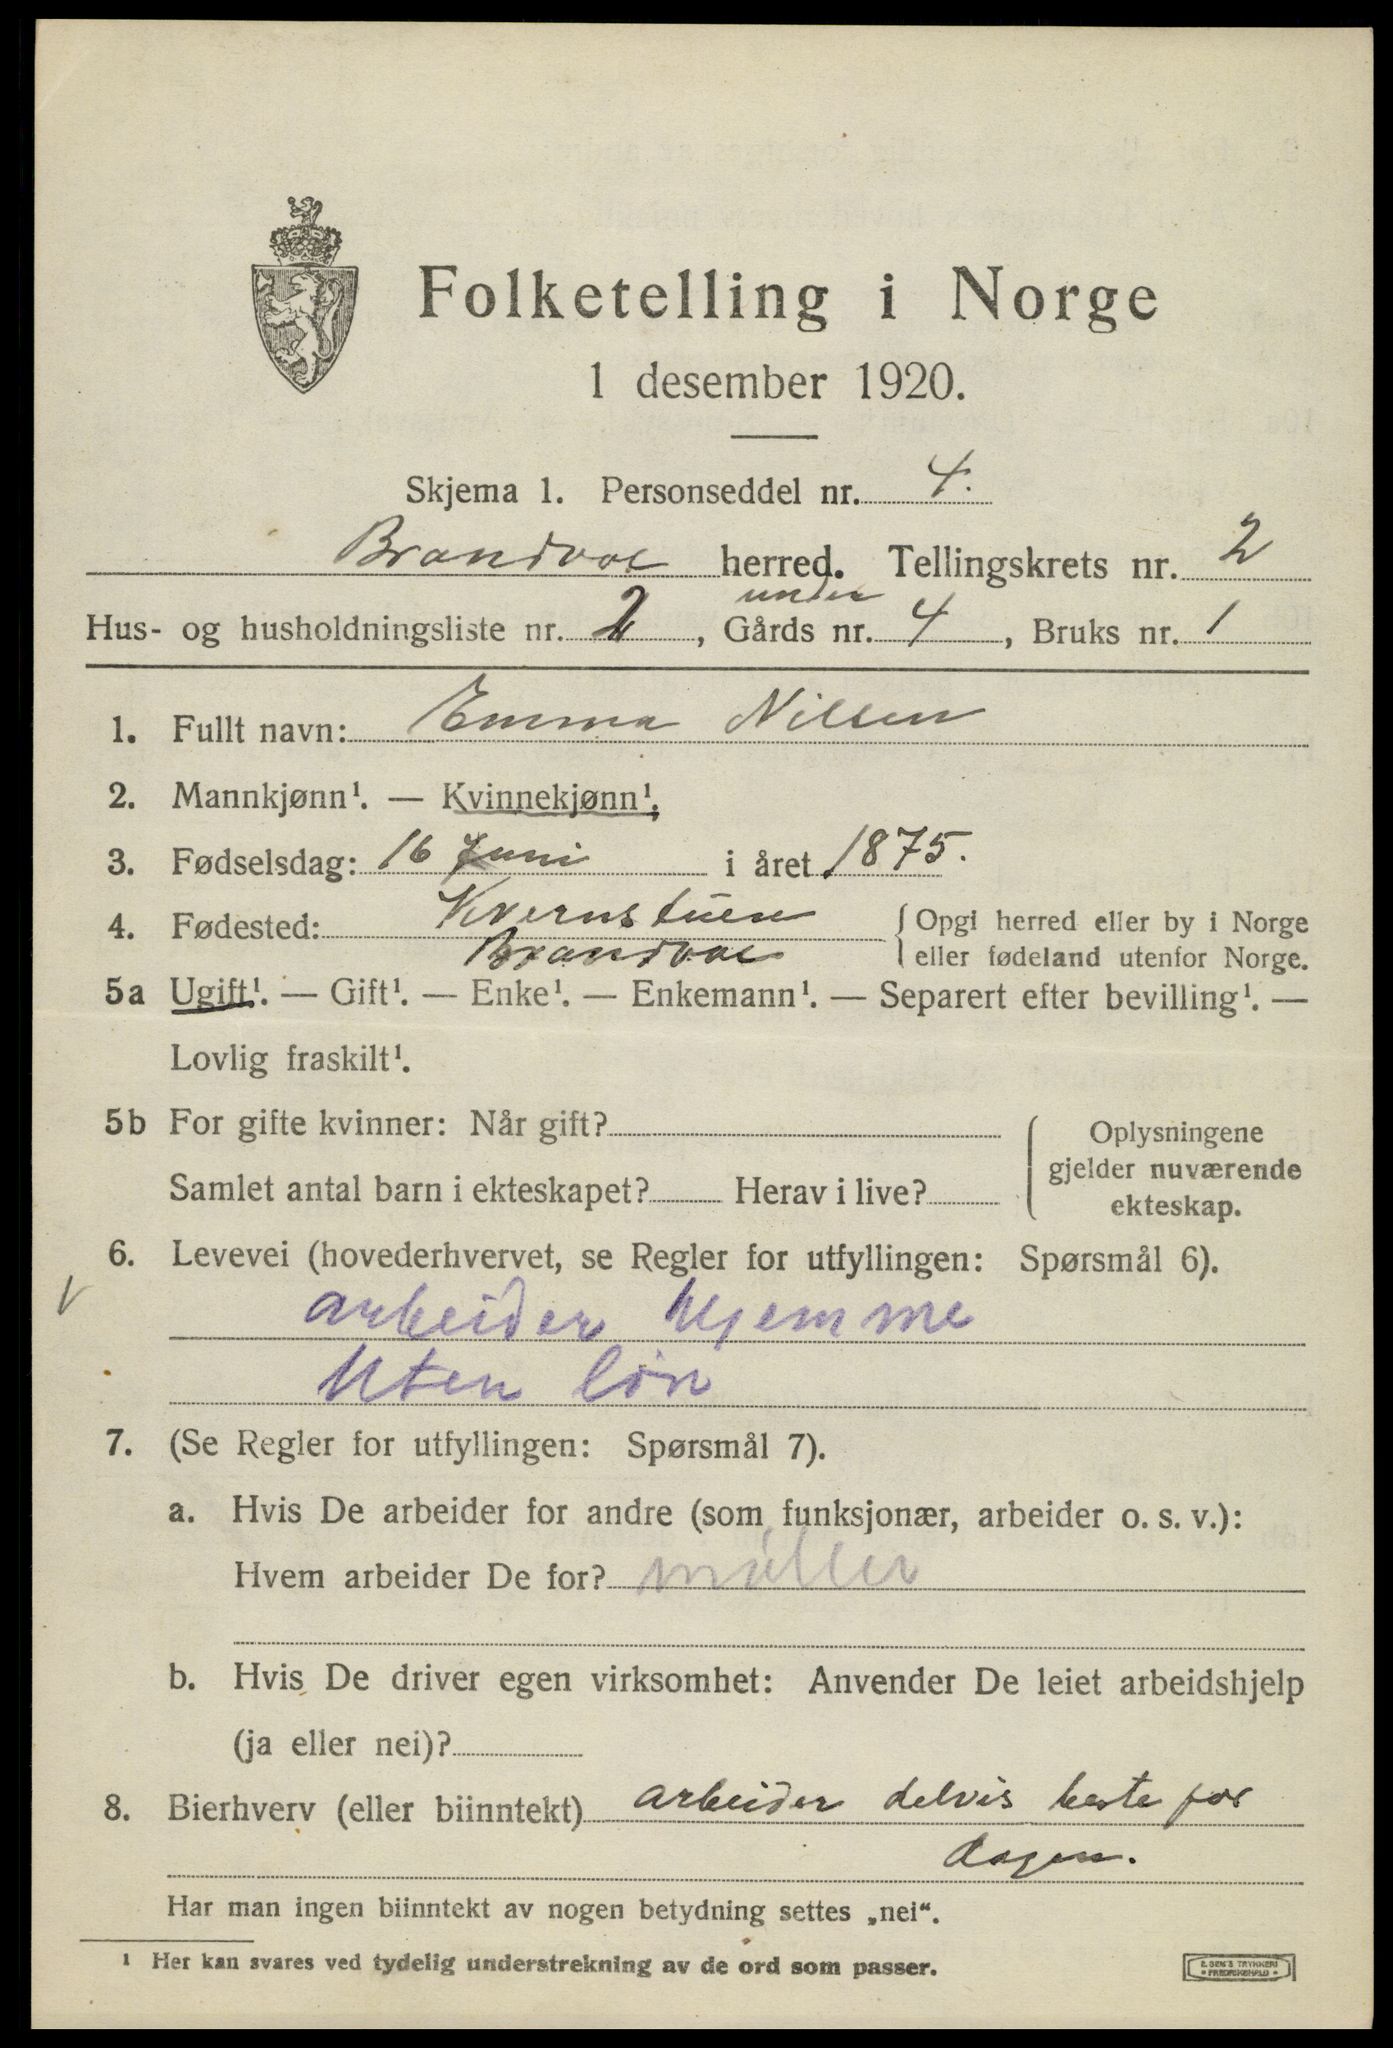 Folketelling i Norge
1 desember 1920.
Skjema 1. Personseddel nr. 4.
Brandvoe herred. Tellingskrets nr. 2
under
Hus- og husholdningsliste nr. 2, Gårds nr. 4, Bruks nr. 1
1. Fullt navn: Emma Nilsen
2. Mannkjønn¹. — Kvinnekjønn¹.
3. Fødselsdag: 16 Juni i året 1875.
4. Fødested: Kvernstuen { Opgi herred eller by i Norge
Brandvoe eller fødeland utenfor Norge.
5a Ugift¹. — Gift¹. — Enke¹. — Enkemann¹. — Separert efter bevilling¹. —
Lovlig fraskilt¹.
5b For gifte kvinner: Når gift? Oplysningene
gjelder nuværende
Samlet antal barn i ekteskapet? Herav i live?
ekteskap.
6. Levevei (hovederhvervet, se Regler for utfyllingen: Spørsmål 6).
arbeider hjemme
Uten løn
7. (Se Regler for utfyllingen: Spørsmål 7).
a. Hvis De arbeider for andre (som funksjonær, arbeider o. s. v.):
Hvem arbeider De for? møller
b. Hvis De driver egen virksomhet: Anvender De leiet arbeidshjelp
(ja eller nei)?
8. Bierhverv (eller biinntekt) arbeider delvis borte for
dagen.
Har man ingen biinntekt av nogen betydning settes „nei“.
¹ Her kan svares ved tydelig understrekning av de ord som passer.
E. SEM'S TRYKKERI
FREDRIKSHALD